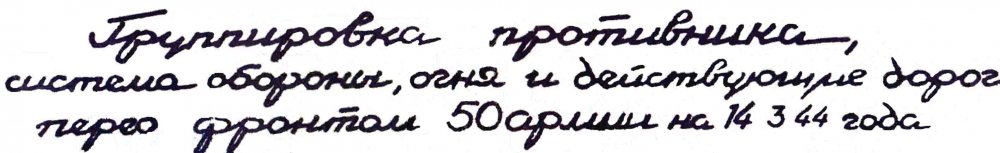 Группировка противника,
система обороны, огня и действующие дорог
перео фронтом 50 армии на 14 3 44 года